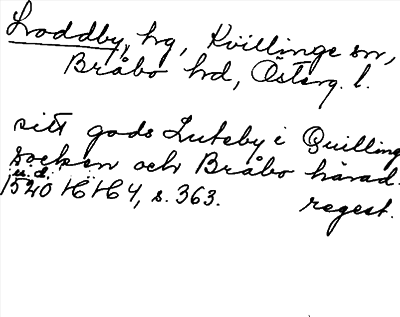 Loddby, hg, Kvillinge sn,
Bråbo hd, Österg. l.
sitt gods Lutsby i Quilling
socken och Bråbo härad.
u.d.
1540 HH 4, s. 363. regest.